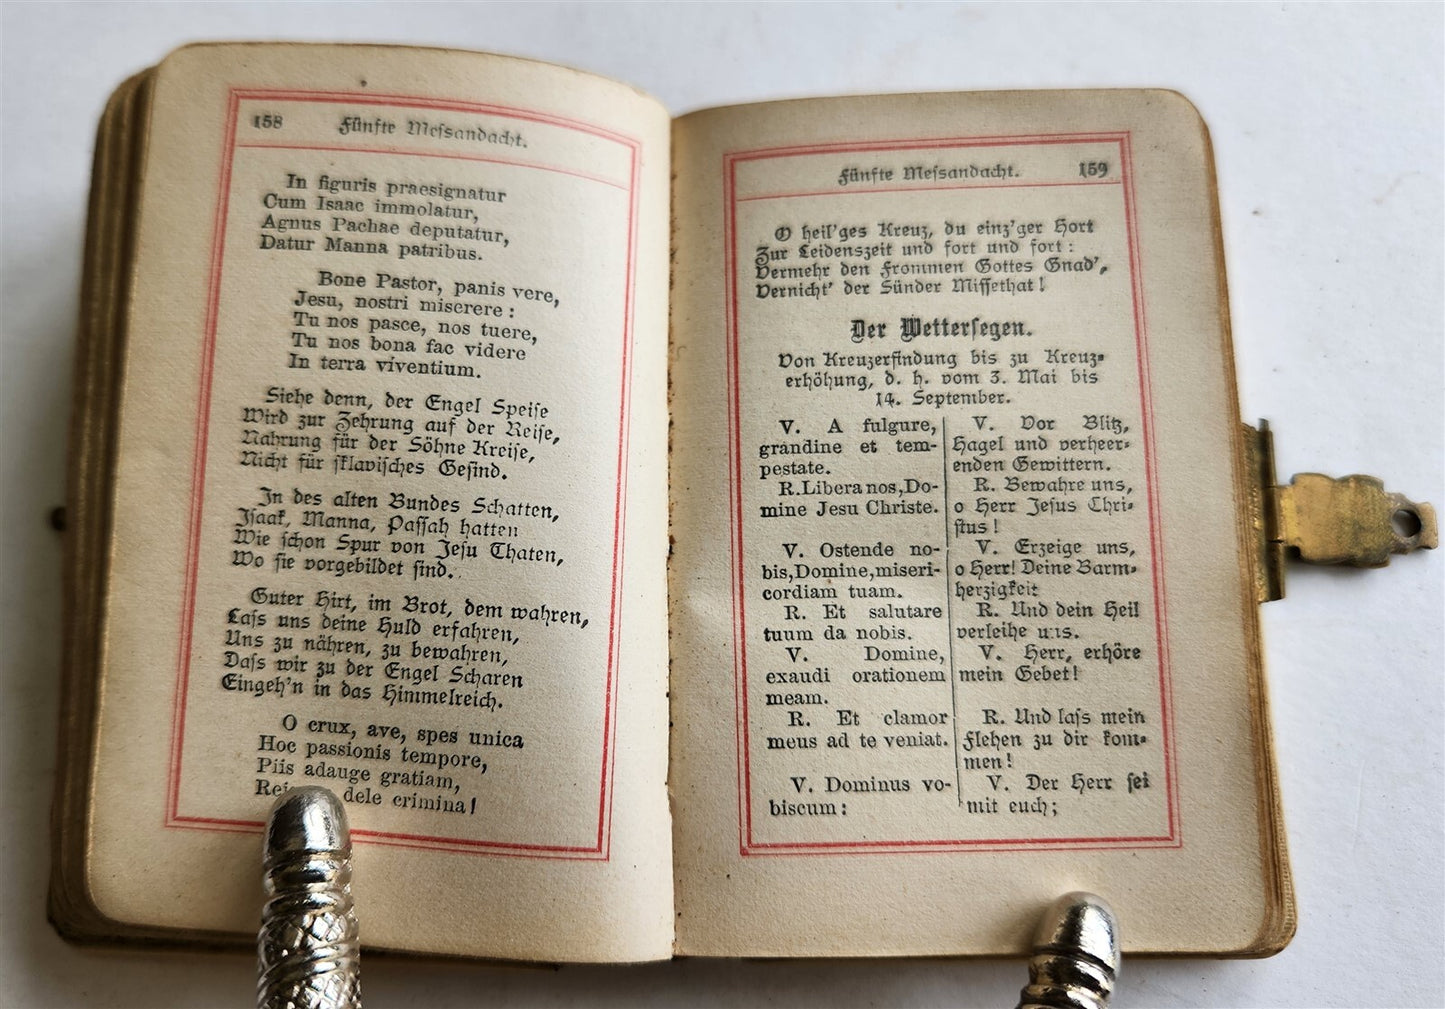 158 Fünfte Messandacht.
In figuris praesignatur
Cum Isaac immolatur,
Agnus Pachae deputatur,
Datur Manna patribus.
Bone Pastor, panis vere,
Jesu, nostri miserere :
Tu nos pasce, nos tuere,
Tu nos bona fac videre
In terra viventium.
Siehe denn, der Engel Speise
Wird zur Zehrung auf der Reise,
Nahrung für der Söhne Kreise,
Nicht für sklavisches Gesind.
In des alten Bundes Schatten,
Isaak, Manna, Passah hatten
Wie schon Spur von Jesu Thaten,
Wo sie vorgebildet sind.
Guter Hirt, im Brot, dem wahren,
Lass uns deine Huld erfahren,
Uns zu nähren, zu bewahren,
Dass wir zu der Engel Scharen
Eingeh'n in das Himmelreich.
O crux, ave, spes unica
Hoc passionis tempore,
Piis adauge gratiam,
dele crimina!
Fünfte Messandacht. 159
O heil'ges Kreuz, du einz'ger Hort
Zur Leidenszeit und fort und fort :
Vermehr den Frommen Gottes Gnad',
Vernicht' der Sünder Missethat!
Der Wettersegen.
Von Kreuzerfindung bis zu Kreuz-
erhöhung, d. h. vom 3. Mai bis
14. September.
V. A fulgure,
grandine et tem-
pestate.
R. Libera nos, Do-
mine Jesu Christe.
V. Ostende no-
bis, Domine, miseri-
cordiam tuam.
R. Et salutare
tuum da nobis.
V. Domine,
exaudi orationem
meam.
R. Et clamor
meus ad te veniat.
V. Dominus vo-
biscum:
V. Vor Blitz,
Hagel und verheer-
enden Gewittern.
R. Bewahre uns,
o Herr Jesus Chri-
stus!
V. Erzeige uns,
o Herr! Deine Barm-
herzigkeit
R. Und dein Heil
verleihe uns.
V. Herr, erhöre
mein Gebet!
R. Und lass mein
Flehen zu dir kom-
men!
V. Der Herr sei
mit euch;